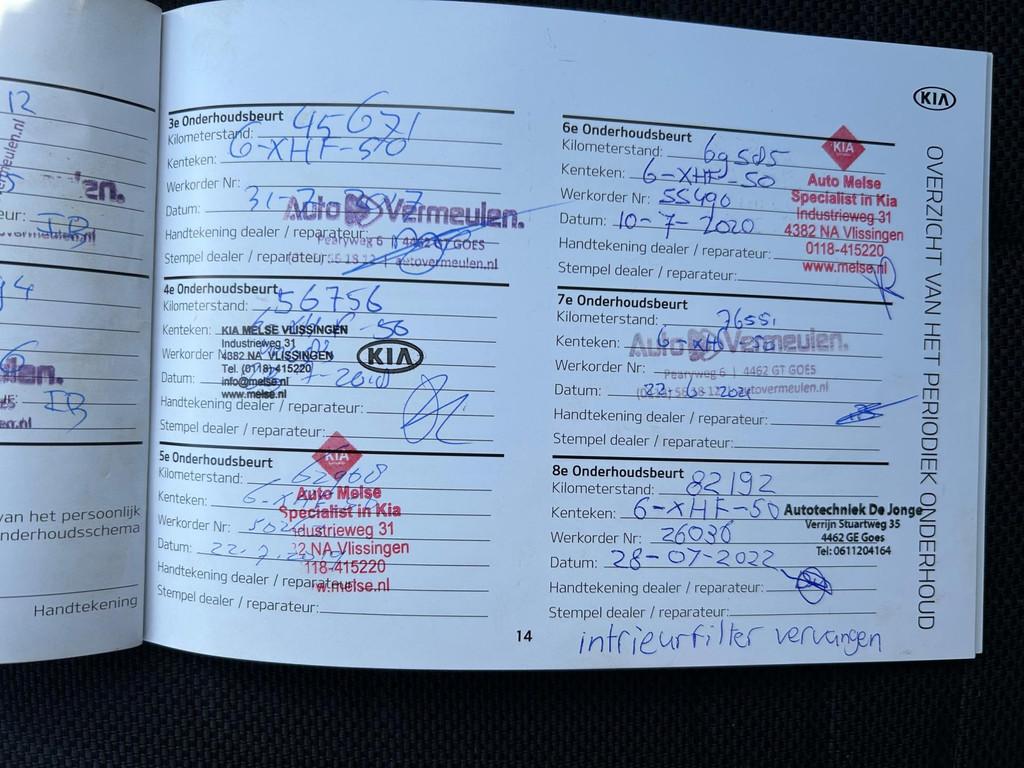 12
IB
94
IB
van het persoonlijk
nderhoudsschema
Handtekening
3e Onderhoudsbeurt
Kilometerstand: 45671
Kenteken: 6-XHF-50
Werkorder Nr:
Datum: 31-7-2017
Auto Vermeulen.
Handtekening dealer / reparateur:
Pearyweg 6 | 4462 GT GOES
Stempel dealer / reparateur:
autovermeulen.nl
4e Onderhoudsbeurt
Kilometerstand: 56756
Kenteken: 6-XHF-50
KIA MELSE VLISSINGEN
Industrieweg 31
Werkorder Nr:
4382 NA VLISSINGEN
Tel. (0118)-415220
KIA
Datum:
info@melse.nl
www.melse.nl
Handtekening dealer / reparateur:
Stempel dealer / reparateur:
5e Onderhoudsbeurt
KIA
Kilometerstand: 62968
Auto Melse
Kenteken: 6-XHF-50
Specialist in Kia
Werkorder Nr:
Industrieweg 31
Datum:
2 NA Vlissingen
118-415220
Handtekening dealer / reparateur:
w.melse.nl
Stempel dealer / reparateur:
14
KIA
6e Onderhoudsbeurt
Kilometerstand: 69585
KIA
Kenteken: 6-XHF-50
Auto Melse
Specialist in Kia
Werkorder Nr: 55490
Industrieweg 31
Datum: 10-7-2020
4382 NA Vlissingen
0118-415220
Handtekening dealer / reparateur:
www.melse.nl
Stempel dealer / reparateur:
7e Onderhoudsbeurt
Kilometerstand: 76551
Kenteken: 6-XHF-50
Auto Vermeulen.
Werkorder Nr:
Pearyweg 6 | 4462 GT GOES
Datum: 22-6-2021
autovermeulen.nl
Handtekening dealer / reparateur:
Stempel dealer / reparateur:
8e Onderhoudsbeurt
Kilometerstand: 82192
Kenteken: 6-XHF-50
Autotechniek De Jonge
Verrijn Stuartweg 35
Werkorder Nr: 26036
4462 GE Goes
Tel: 0611204164
Datum: 28-07-2022
Handtekening dealer / reparateur:
Stempel dealer / reparateur:
intrieurfilter vervangen
OVERZICHT VAN HET PERIODIEK ONDERHOUD